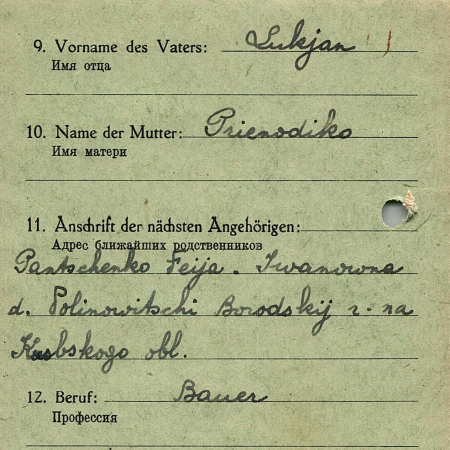 9. Vorname des Vaters: Lukjan
Имя отца
10. Name der Mutter: Prienodiko
Имя матери
11. Anschrift der nächsten Angehörigen:
Адрес ближайших родственников
Pantschenko Feija. Iwanowna
d. Polinowitschi Borodskij r-na
obl.
12. Beruf: Bauer
Профессия